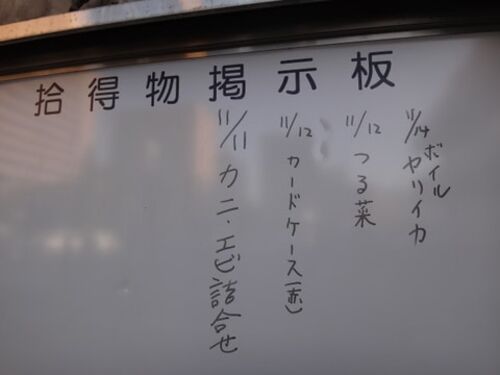 拾得物掲示板
11/14 ボイルヤリイカ
11/12 つる菜
11/12 カードケース(赤)
11/11 カニ・エビ詰合せ